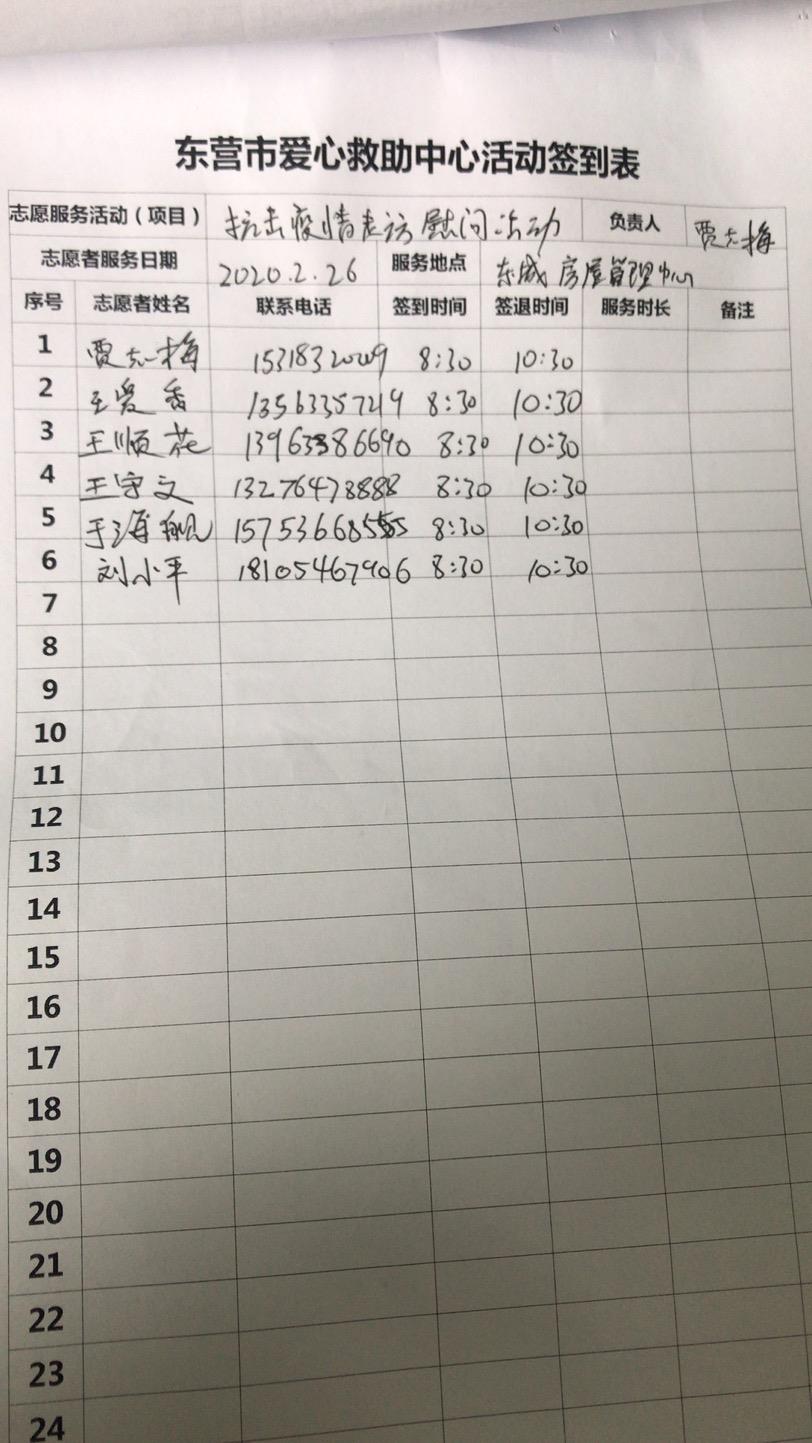 东营市爱心救助中心活动签到表
志愿服务活动（项目） 抗击疫情走访慰问活动 负责人 贾志梅
志愿者服务日期 2020.2.26 服务地点 东城房屋管理中心
序号 志愿者姓名 联系电话 签到时间 签退时间 服务时长 备注
1 贾志梅 8:30 10:30
2 王爱香 13563357219 8:30 10:30
3 王顺花 8:30 10:30
4 王守文 13276478888 8:30 10:30
5 于海帆 8:30 10:30
6 刘小平 18105467906 8:30 10:30
7
8
9
10
11
12
13
14
15
16
17
18
19
20
21
22
23
24